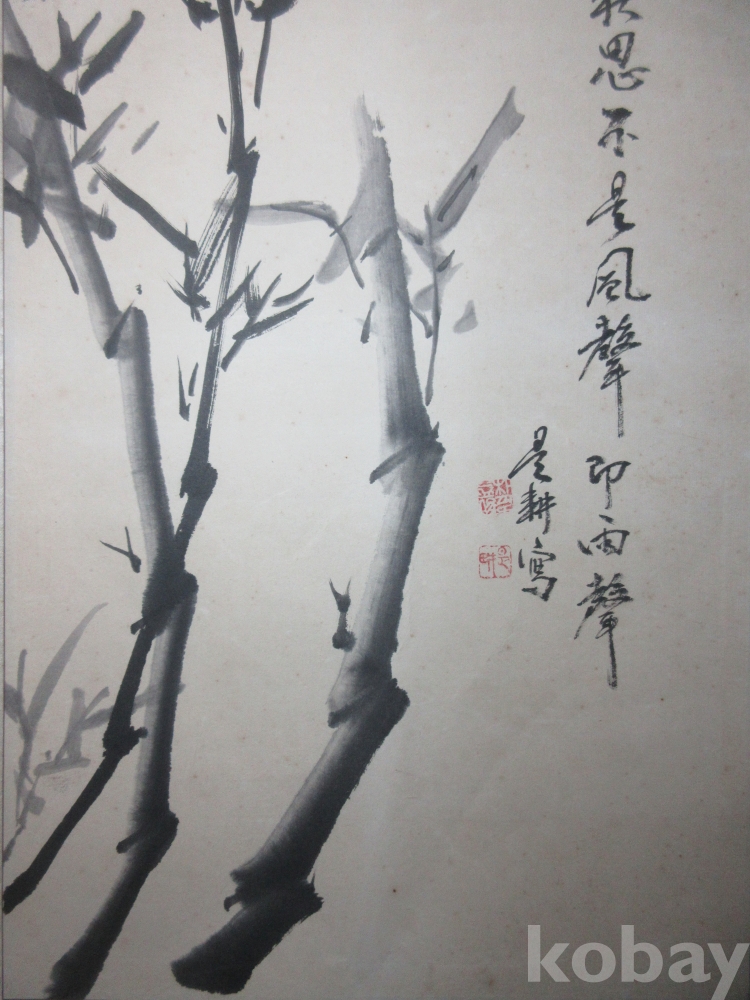 思不是風聲即雨聲
是耕寫
kobay